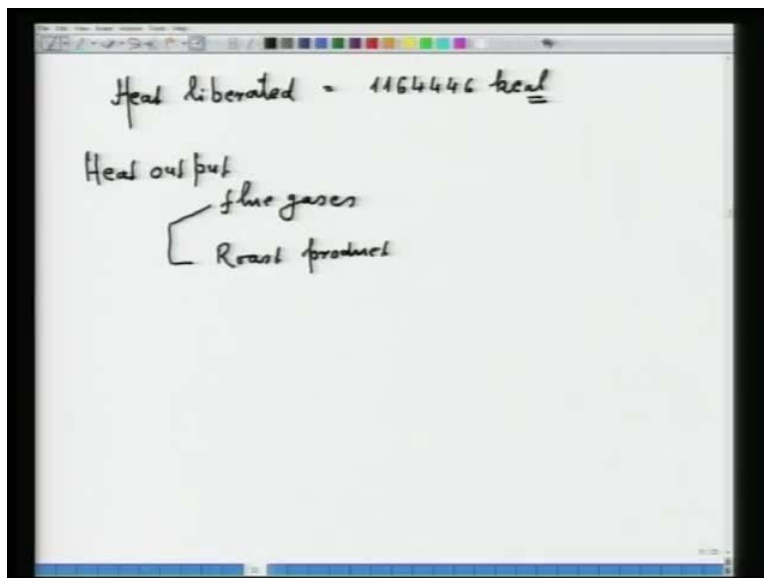 Heat liberated = 1164446 kcal
Heat output
flue gases
Roast product